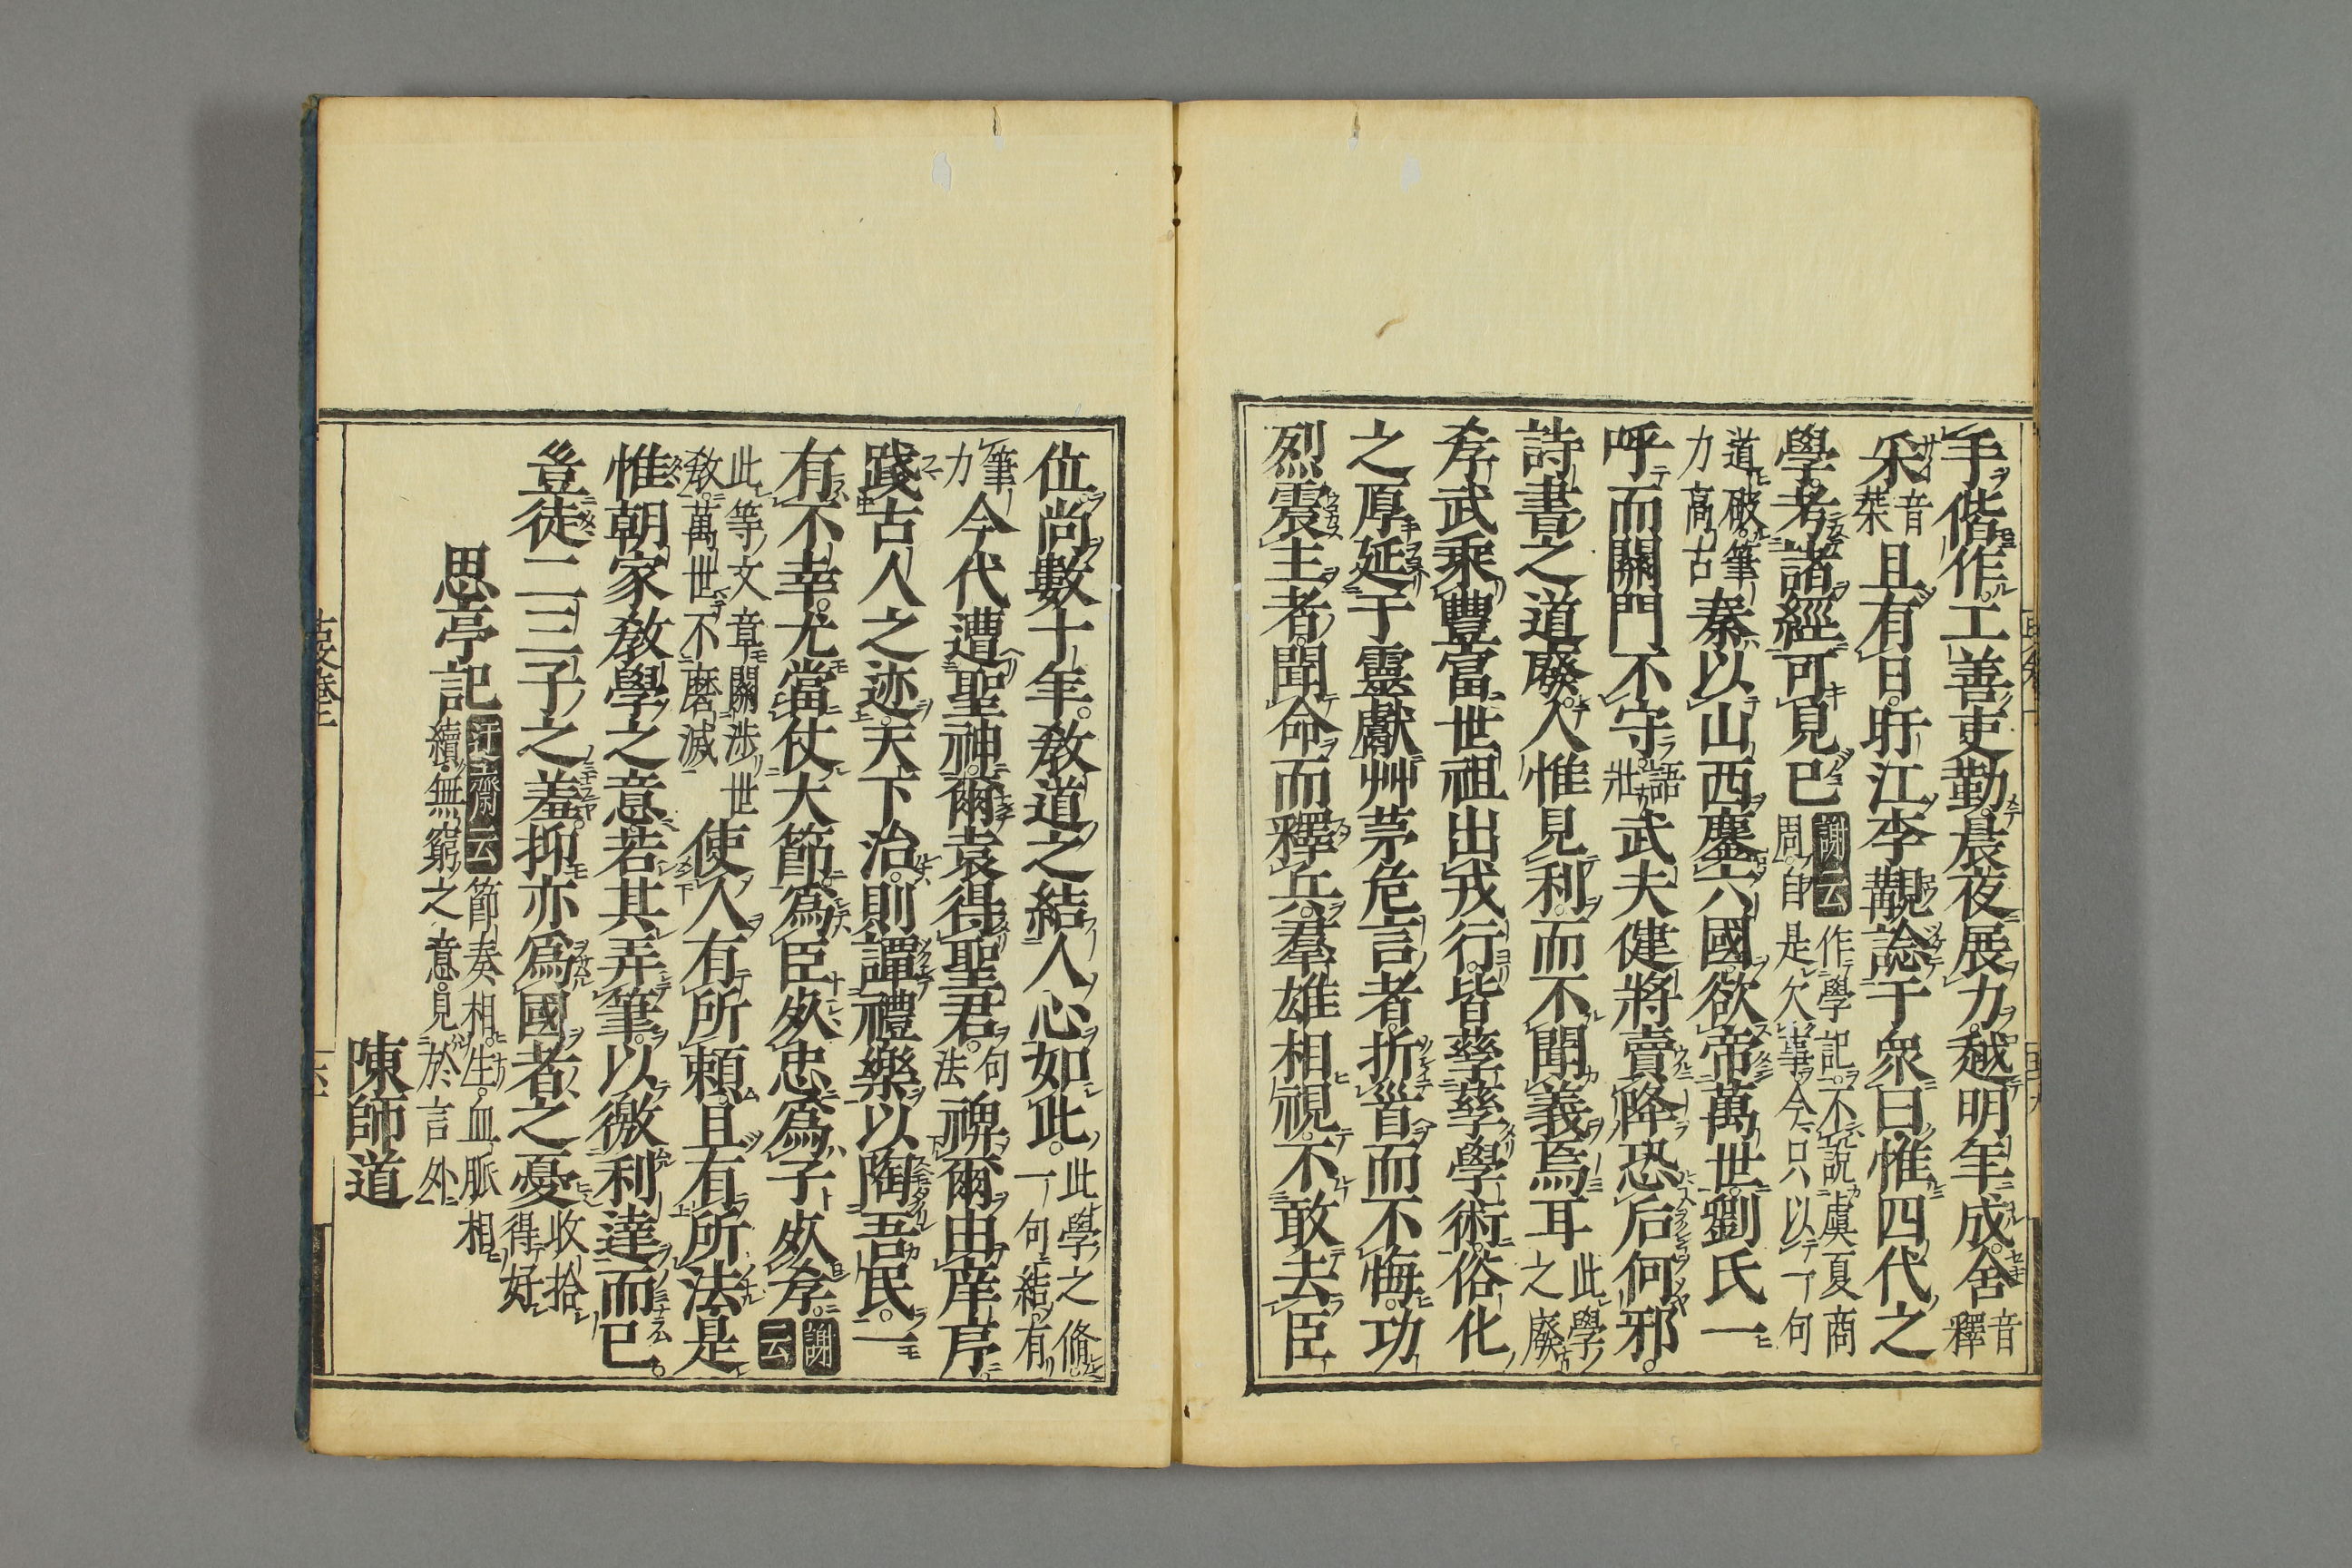 手偕作工善吏勤晨夜展力越明年成舍音釋
采音菜且有日旴江李覯諗于衆曰惟四代之
學考諸經可見已謝云作學記不說虞夏商周自是欠事今只以一句
道破筆力高古秦以山西鏖六國欲帝萬世劉氏一
呼而關門不守語壯武夫健將賣降恐后何邪
詩書之道廢人惟見利而不聞義焉耳此學之廢
孝武乘豊富世祖出戎行皆孳孳學術俗化
之厚延于靈獻艸茅危言者折首而不悔功
烈震主者聞命而釋兵羣雄相視不敢去臣
位尚數十年。教道之結人心如此。此學之脩一句結有
筆力今代遭聖神爾袁得聖君。句法俾爾由庠序
踐古人之迹天下治則譚禮樂以陶吾民。一
有不幸尤當仗大節爲臣死忠爲子死孝。謝云
此等文章關涉世敎萬世不磨滅使人有所賴且有所法是
惟朝家教學之意若其弄筆以徼利達而已
豈徒二三子之羞抑亦爲國者之憂收拾得好
思亭記迂齋云節奏相生血脈相續無窮之意見於言外
陳師道